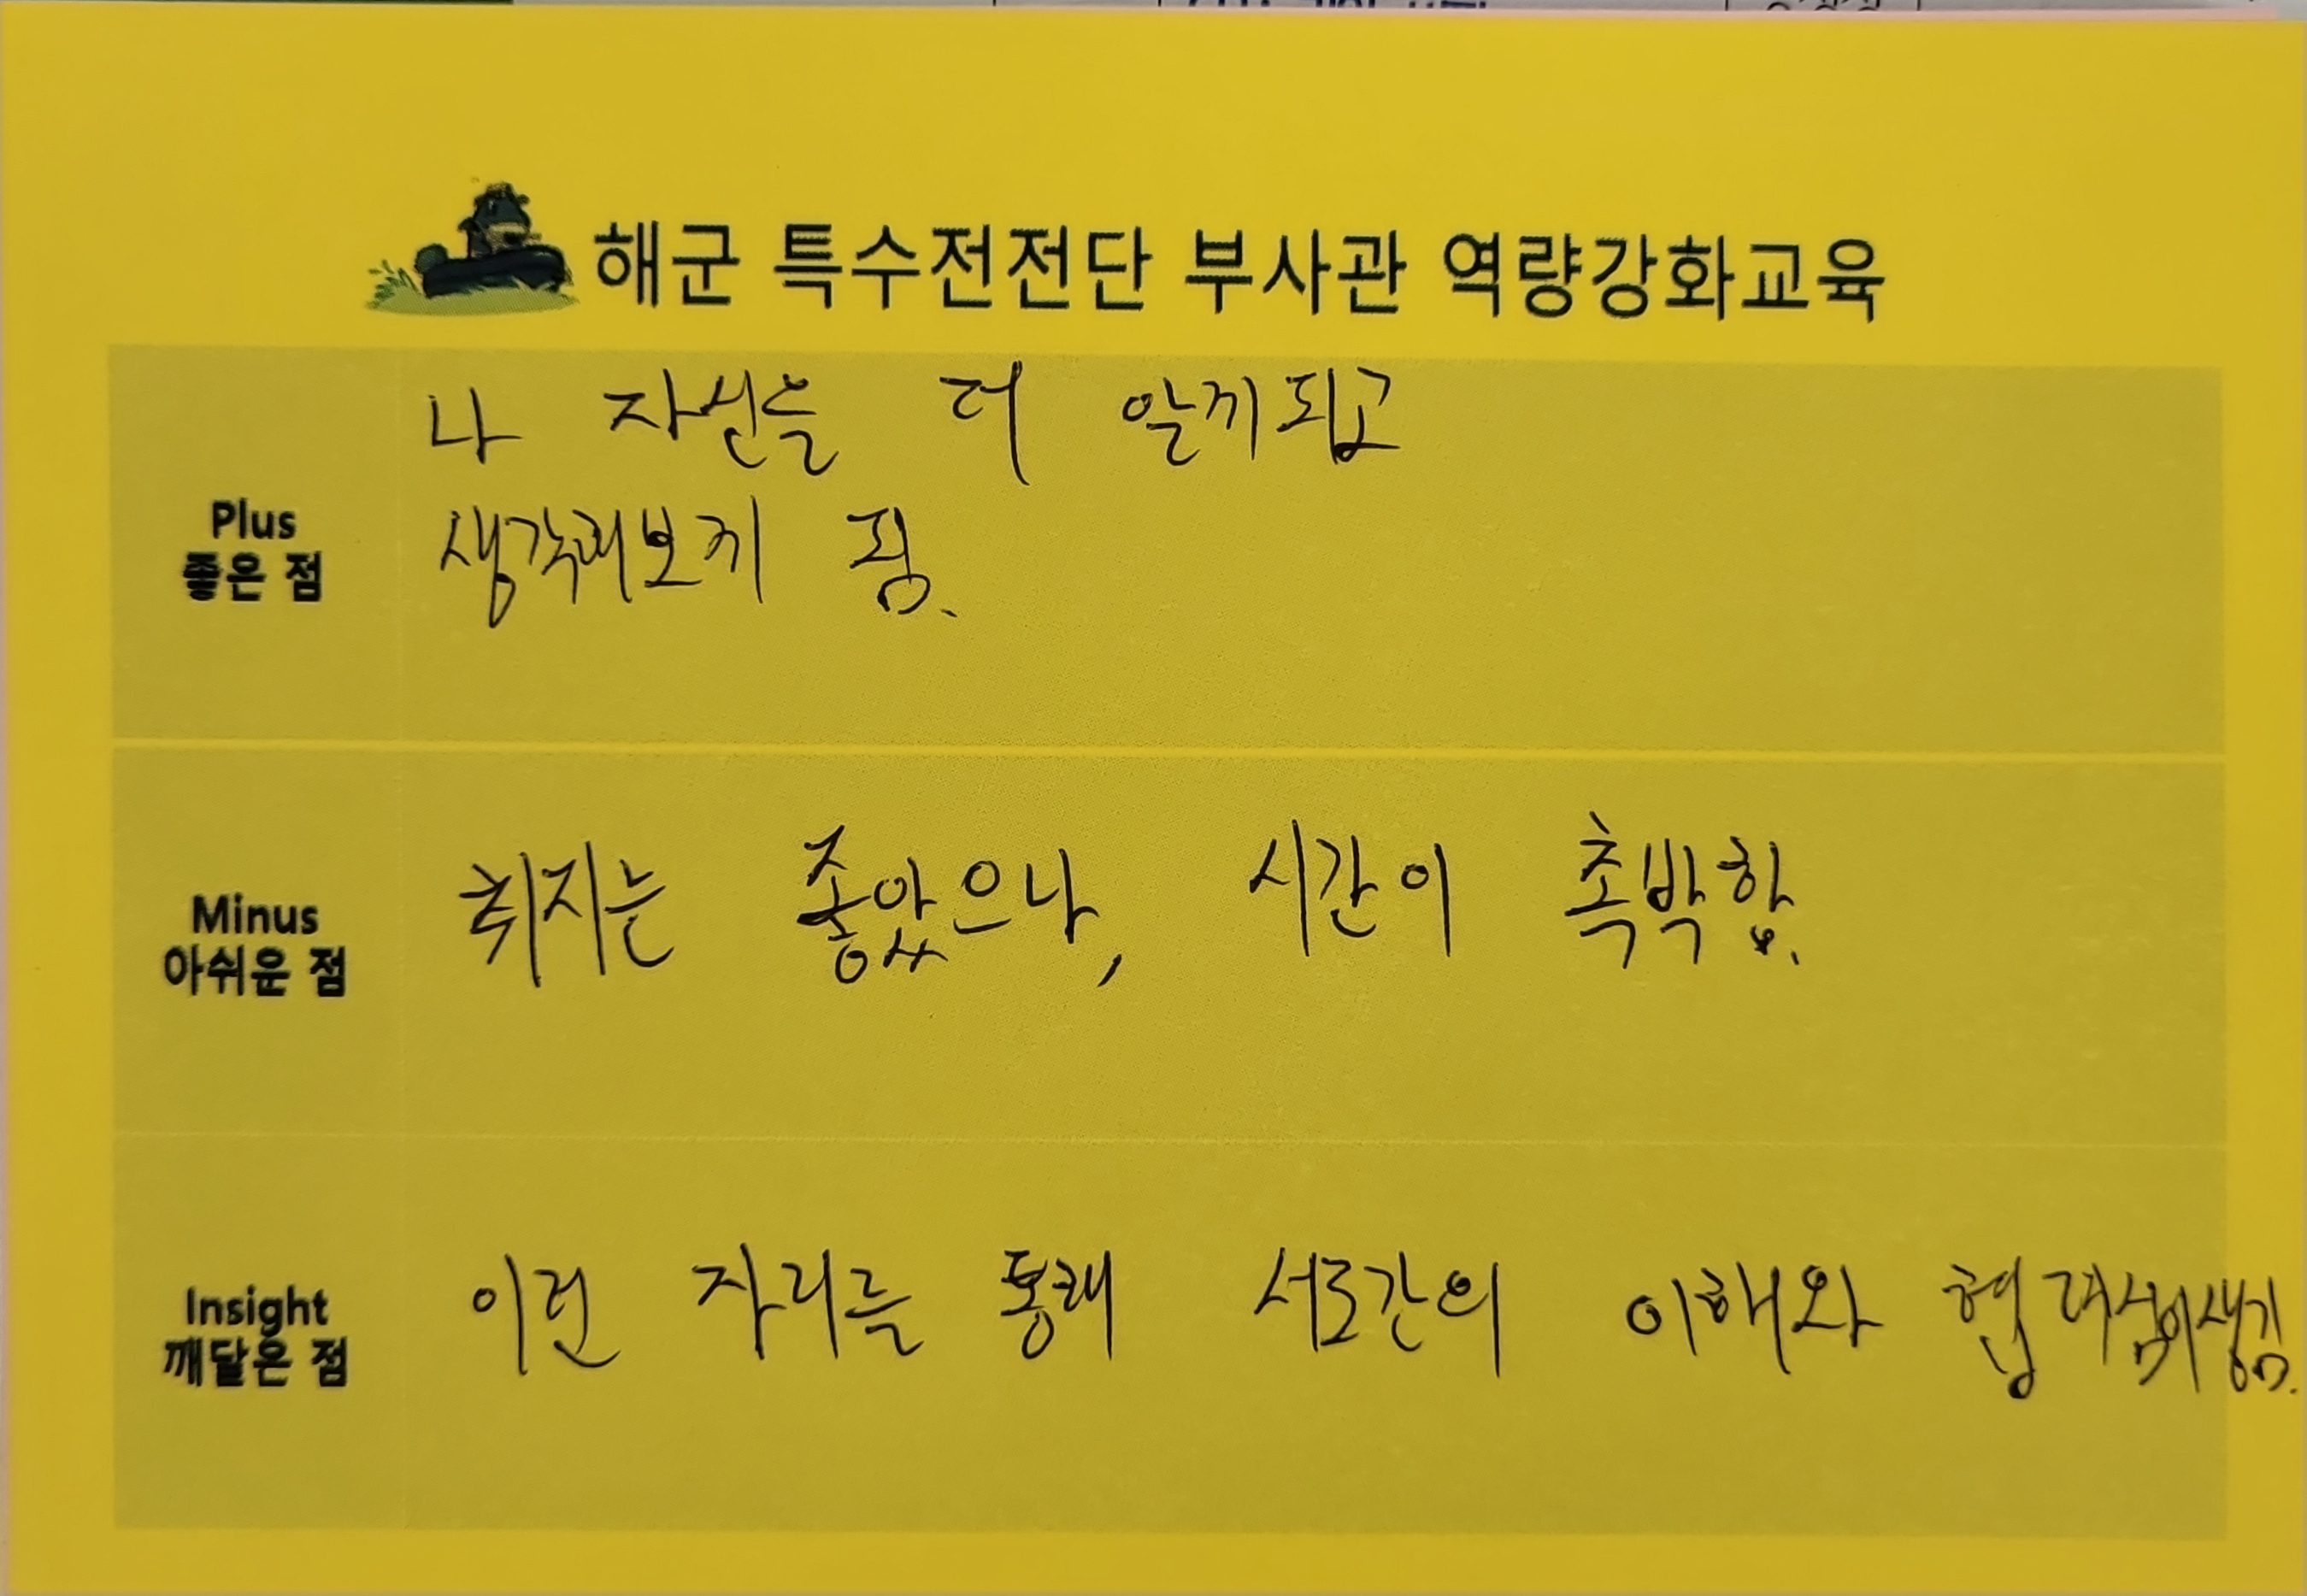 해군 특수전전단 부사관 역량강화교육
Plus
좋은 점
나 자신을 더 알게되고
생각해보게 됨.
Minus
아쉬운 점
취지는 좋았으나, 시간이 촉박함.
Insight
깨달은 점
이런 자리를 통해 서로간의 이해와 협력심이생김.